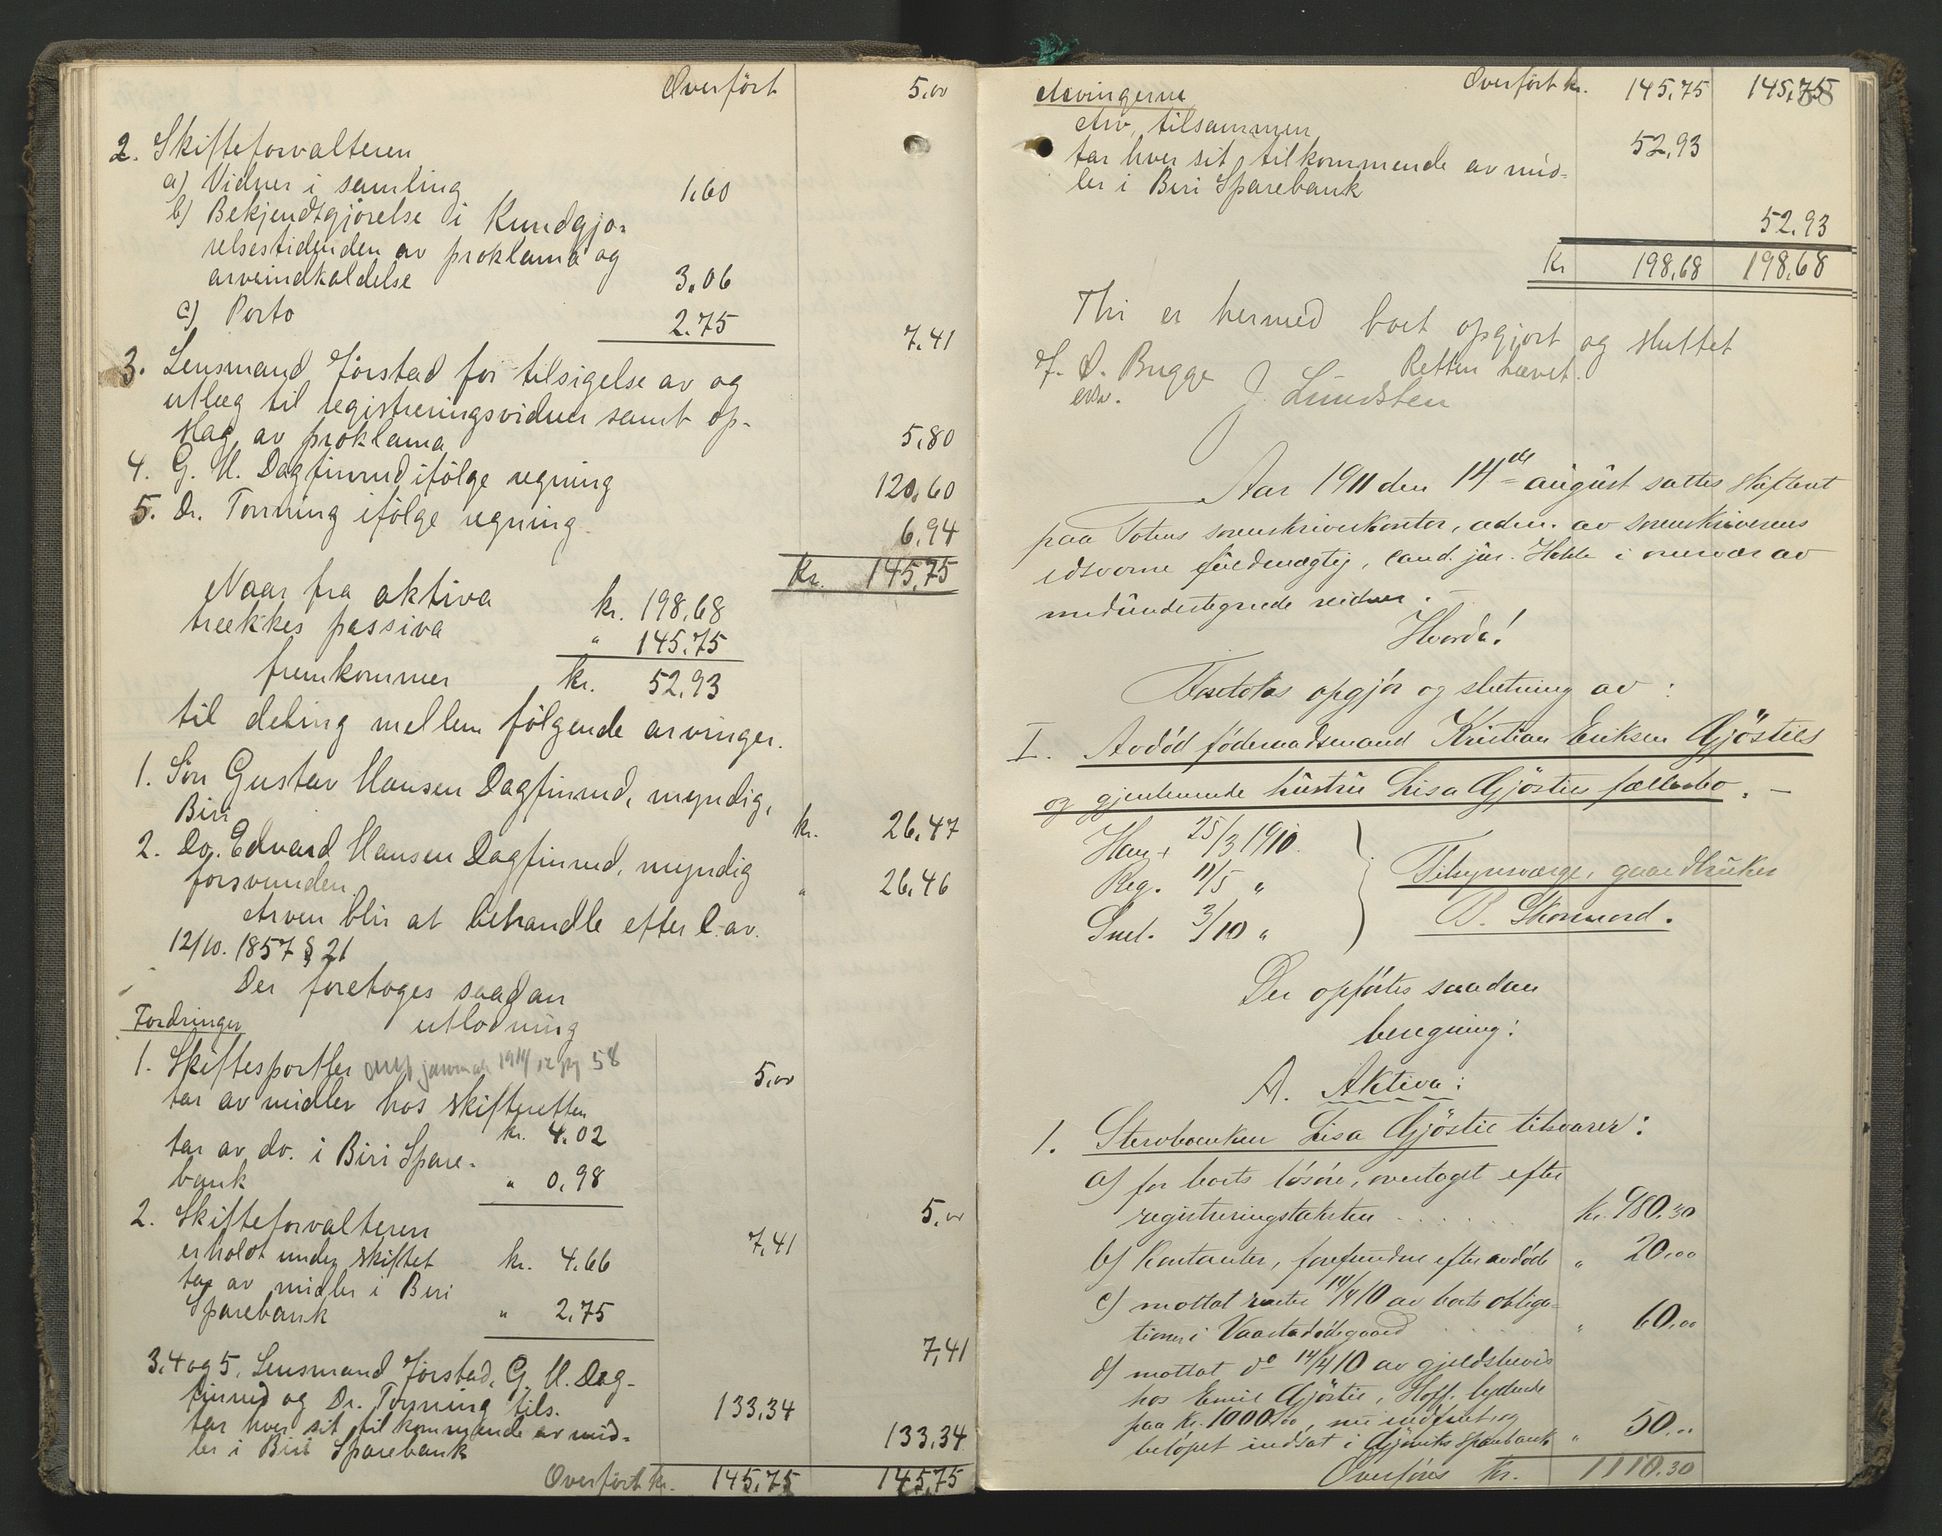 Overført 5,00
2. Skifteforvalteren
a) Vidner i samling 1,60
b) Bekjendtgjørelse i Kundgjø-
relsestidenden av proklama og
arveindkaldelse 3,06
c) Porto 2.75
7,41
3. Lensmand Jørstad for tilsigelse av og
utlæg til registreringsvidner samt op-
slag av proklama 5,80
4. G. H. Dagfinrud ifølge regning 120,60
5. Dr. Tonning ifølge regning 6,94
Kr. 145,75
Naar fra aktiva kr. 198,68
trækkes passiva " 145,75
fremkommer kr. 52,93
til deling mellem følgende arvinger.
1. Søn Gustav Hansen Dagfinrud, myndig,
Biri kr. 26,47
2. Do. Edvard Hansen Dagfinrud, myndig
forsvunden " 26,46
Arven blir at behandle efter l. av.
12/10. 1857 § 21
Der foretages saadan
utlodning
Fordringer
1. Skiftesportler januar 58 5,00
tar av midler hos skifteretten
kr. 4.02
tar av do. i Biri Spare-
bank " 0,98
5,00
2. Skifteforvalteren 7,41
erholdt under skiftet kr. 4,66
tar av midler i Biri
Sparebank " 2,75
7,41
3,4 og 5, Lensmand Jørstad, G. H. Dag-
finrud og Dr. Tonning tils. 133,34
tar hver sit tilkommende av mid-
ler i Biri Sparebank 133,34
Overført kr. 145,75 145,75
Overført kr. 145,75 145,75
88
Arvingerne
Arv, tilsammen 52,93
tar hver sit tilkommende av mid-
ler i Biri Sparebank
52,93
Kr 198,68 198,68
Thi er hermed boet opgjort og sluttet
Retten hævet.
J. Lundsten
Aar 1911 den 14de august sattes skifteret
paa Totens sorenskriverkontor, adm. av sorenskriverens
edsvorne fuldmægtig, cand. jur. Holde i overvær av
medundertegnede vidner. –
Hvorda!
Foretokes opgjør og slutning av:
I. Avdød føderaadsmand Kristian Eriksen Gjøsties
og gjenlevende hustru Lisa Gjøsties fællesbo. –
Han + 25/3 1910.
Reg. 11/5 "
Sml. 3/10 "
Tilsynsværge, gaardbruker
Der opførtes saadan
beregning:
A. Aktiva:
1. Stervboenken Lisa Gjøstie tilsvarer:
a) for boets løsøre, overtaget efter
registreringstaksten . . . . . . kr. 980.30
b) Kontanter, forefundne efter avdøde " 20,00
c) mottat renter 14/4 10 av boets obliga-
tioner i Vaarstadødegaard . . . . " 60,00
d) mottat do 14/4 10 av gjeldsbevis
hos Emil Gjøstie, Hoff, lydende
paa kr. 1000,00, nu indfriet og
beløpet indsat i Gjøviks Sparebank " 50,00
Overføres Kr. 1110.30